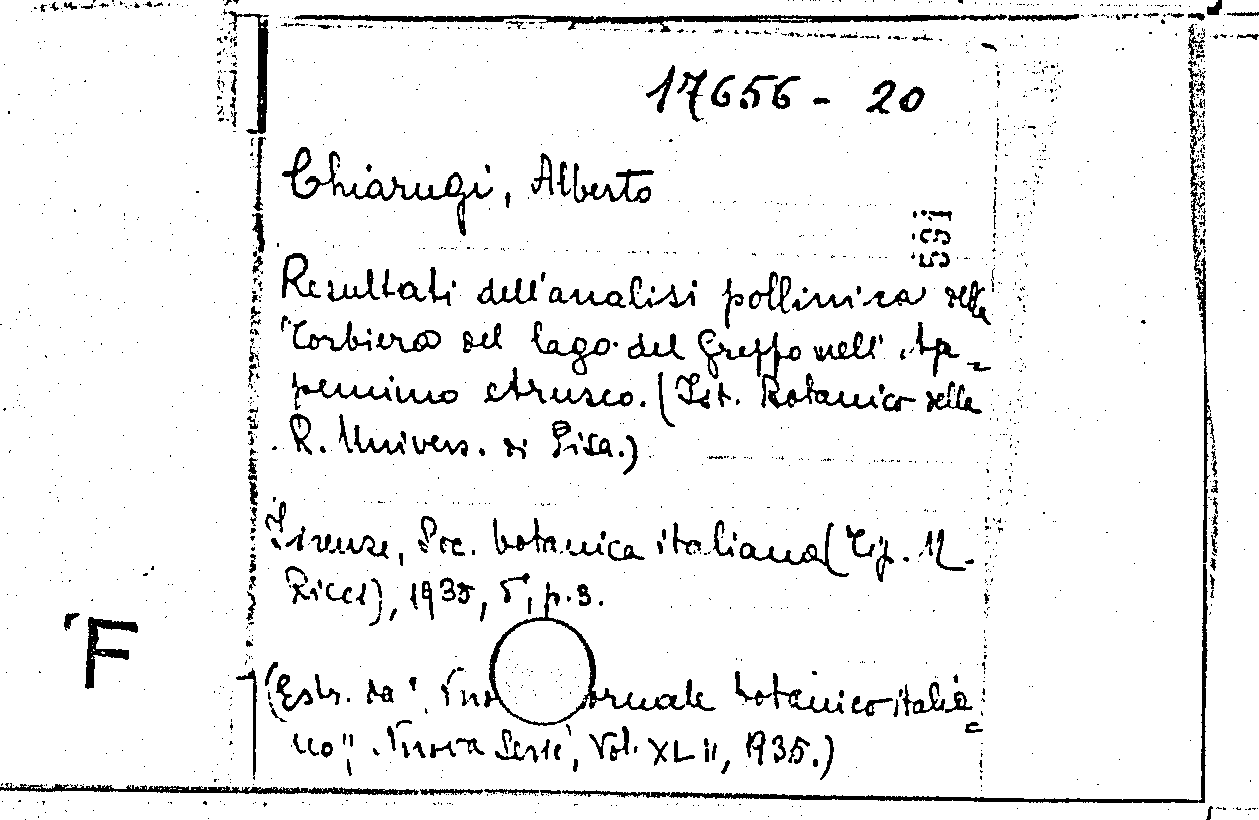 17656 - 20
Chiarugi, Alberto
591
Resultati dell'analisi pollinica della
Torbiera del lago del Greppo nell' Ap=
pennino etrusco. (Ist. Botanico della
R. Univers. di Pisa.)
Firenze, Soc. botanica italiana (Tip. M.
Ricci), 1935, 8°, p. 3.
(Estr. da "Nuo ornale botanico italia=
no", Nuova Serie, Vol. XLII, 1935.)
F